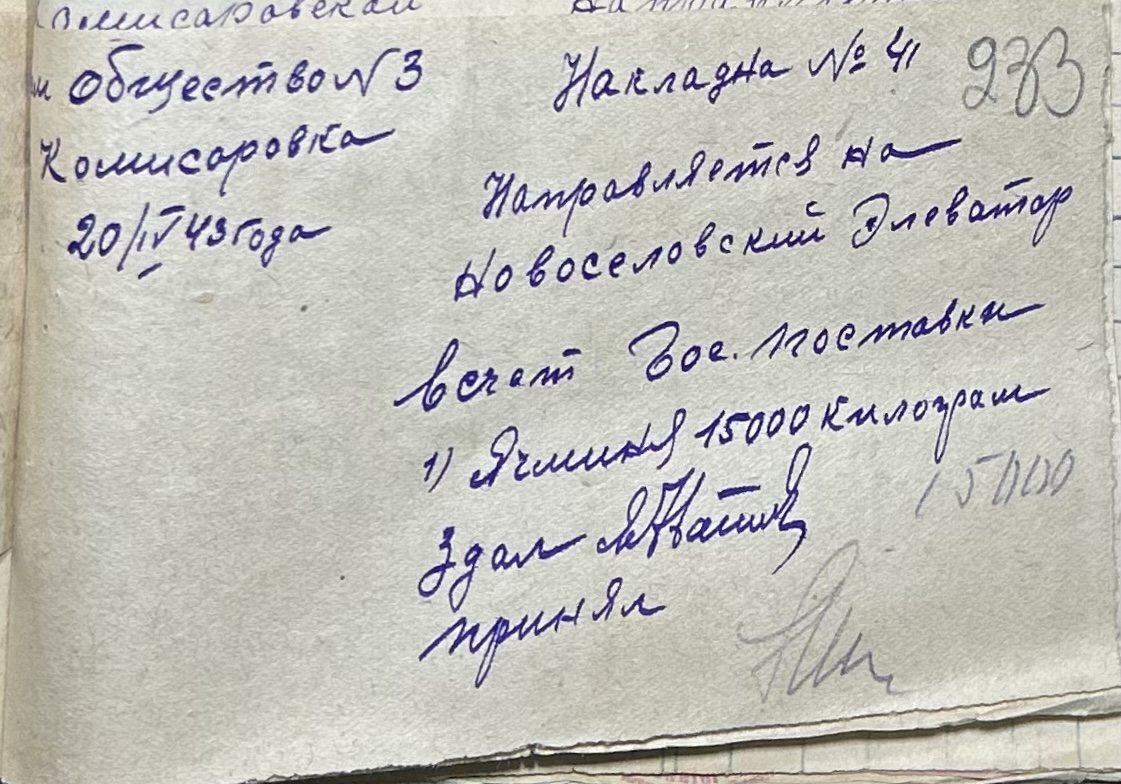 Комисаровской
Общество N 3
Комисаровка
20/IV 43 года
Накладна № 41
233
Направляется на
Новоселовский Элеватор
всчет Гос. поставки
1) Ячминя 15000 килограм
15000
Здал
принял